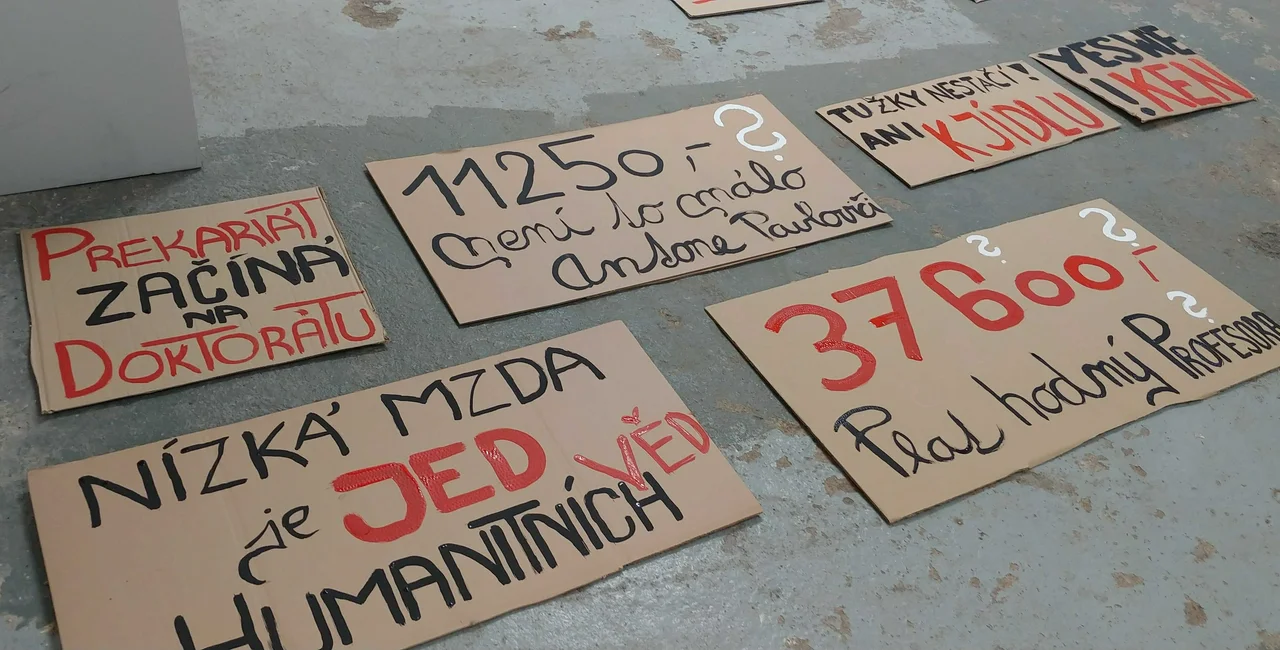 PREKARIÁT
ZAČÍNÁ
NA
DOKTORÁTU
11250,- ?
není to málo
Antone Pavloviči
TUŽKY NESTAČÍ!
ANI K JÍDLU
YES WE
!KEN
NÍZKÁ MZDA
je JED VĚD
HUMANITNÍCH
? ?
37600,-
?
Plat hodný PROFESORA